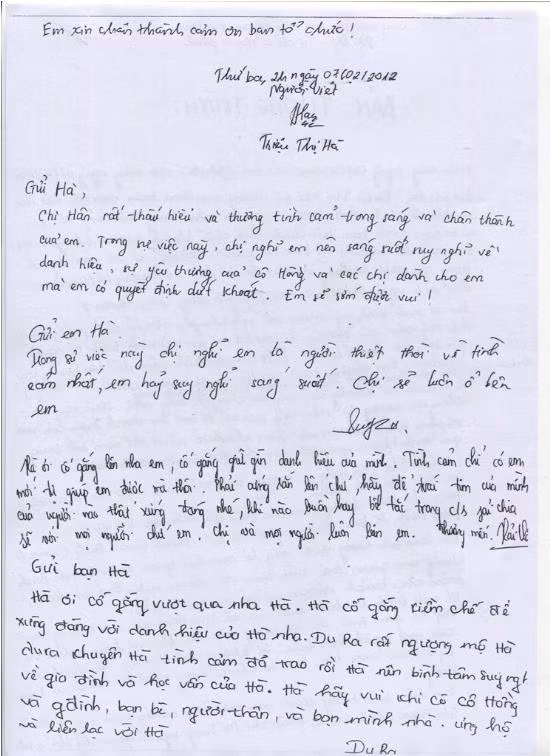 Em xin chân thành cảm ơn ban tổ chức!
Thứ ba, 2h ngày 07/02/2012
Người viết
Triệu Thị Hà
Gửi Hà,
Chị Hân rất thấu hiểu và thương tình cảm trong sáng và chân thành
của em. Trong sự việc này, chị nghĩ em nên sáng suốt suy nghĩ về
danh hiệu, sự yêu thương của cô Hồng và các chị dành cho em
mà em có quyết định dứt khoát. Em sẽ sớm được vui!
Gửi em Hà
Trong sự việc này chị nghĩ em là người thiệt thòi về tình
cảm nhất, em hãy suy nghĩ sáng suốt. Chị sẽ luôn ở bên
em
Hà ơi cố gắng lên nha em, cố gắng giữ gìn danh hiệu của mình. Tình cảm chỉ có em
mới tự giúp em được mà thôi. Phải cứng rắn lên chứ, hãy để trái tim của mình
của người nào thật xứng đáng nhé, khi nào buồn hay bế tắc trong c/s
sẽ với mọi người chứ em. Chị và mọi người luôn bên em. Thương mến.
Gửi bạn Hà
Hà ơi cố gắng vượt qua nha Hà. Hà cố gắng kiềm chế để
xứng đáng với danh hiệu của Hà nha. Du Ra rất ngưỡng mộ Hà
dura khuyên Hà tình cảm đã trao rồi Hà nên bình tâm suy ngĩ
về gia đình và học vấn của Hà. Hà hãy vui khi có cô Hồng
và gđình, bạn bè, người thân, và bạn mình nhà. ủng hộ
và liên lạc với Hà
Du Ra